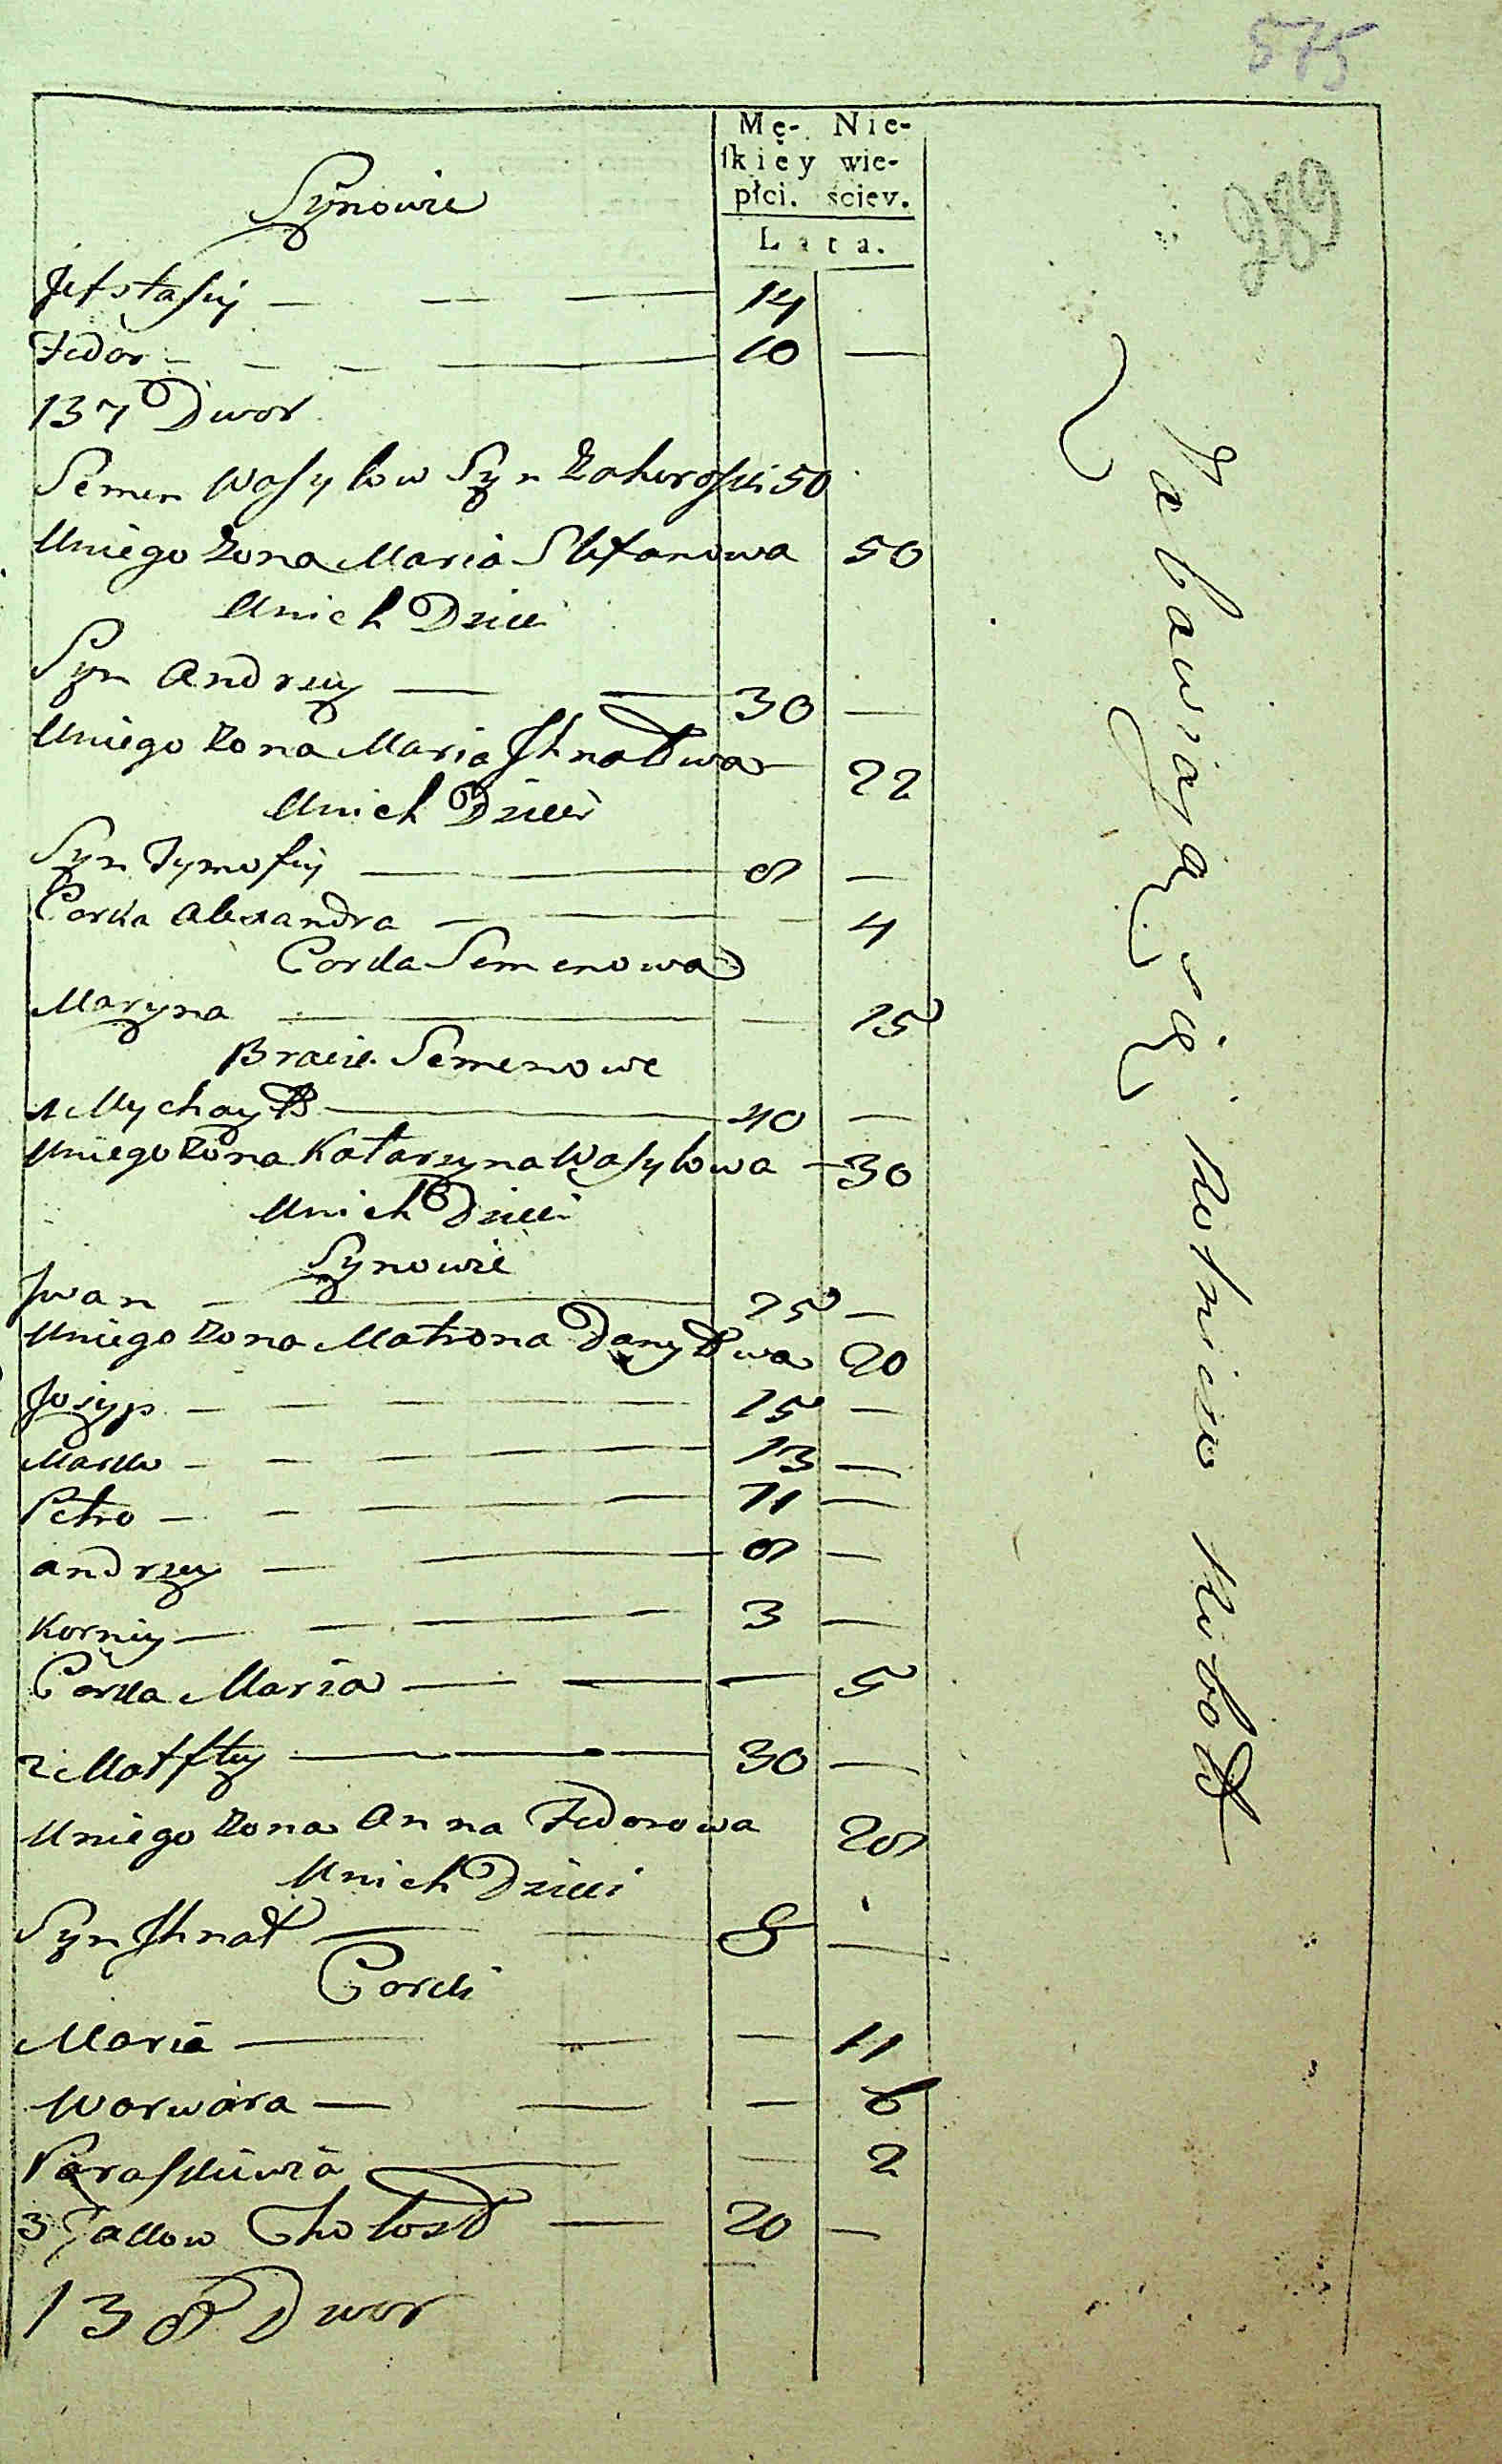 575
289
Mę- Nie-
skiey wie-
płci. ściey.
Lata.
Synowie
Jefstafiy — — — 14
Fedor — — — — 10 —
137 Dwor
Semen Wasylow Syn 50
Uniego Zona Maria Stefanowa 50
Unich Dzieci
Syn Andrzey — — 30 —
Uniego Zona Maria Ihnatowa — 22
Unich Dzieci
Syn Tymofiy — 8 —
Corka Alexandra — — — 4
Corka Semenowa
Maryna — — 15
Bracia Semenowe
1 Mychayło — 40 —
Uniego Zona Katarzyna Wasylowa — 30
Unich Dzieci
Synowie
Jwan — — 25 —
Uniego Zona Matrona Danyłowa 20
Josyp — — — — 15 —
Marko — — — 13 —
Petro — — — — 11 —
Andrzey — — 8 —
Korniy — — — — 3 —
Córka Maria — — — 5
2 Matfiey — — — 30 —
Uniego Zona Anna Fedorowa 28
Unich Dzieci
Syn Ihnat — — 8 —
Corki
Maria — — — 11
Warwara — — — 6
Paraskiewia — — 2
3 Jakow Chołost — 20 —
138 Dwor
Zabawiaią się Rolniczo Robotą